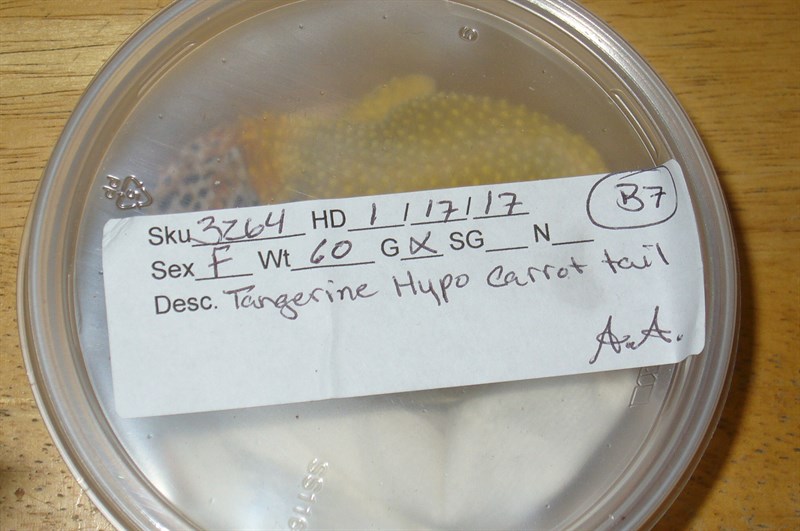 B7
Sku 3264 HD 1/17/17
Sex F Wt 60 G X SG N
Desc. Tangerine Hypo Carrot tail
A.A.